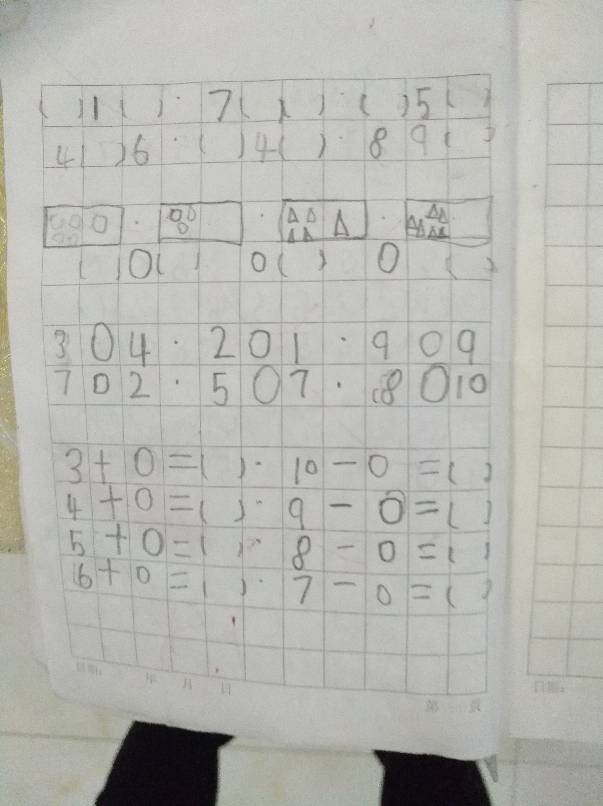 ( )1( ) · 7( )( ) · ( )5( )
4( )6 · ( )4( ) · 8 9( )
( )0( ) 0( ) 0 ( )
3 0 4 · 2 0 1 · 9 0 9
7 0 2 · 5 0 7 · 8 0 10
3 + 0 = ( ) · 10 - 0 = ( )
4 + 0 = ( ) · 9 - 0 = ( )
5 + 0 = ( ) · 8 - 0 = ( )
6 + 0 = ( ) · 7 - 0 = ( )
日期: 年 月 日 第 页
日期: